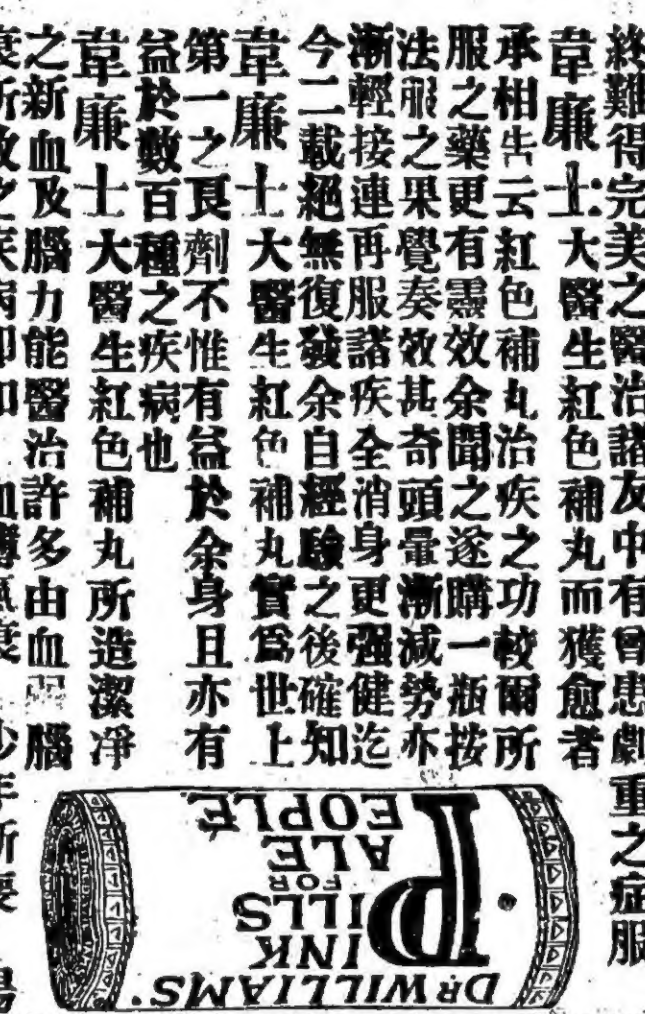 終難得完美之醫治諸友中有曾患劇重之症服
韋廉士大醫生紅色補丸而獲愈者
承相告云紅色補丸治疾之功較爾所
服之藥更有靈效余聞之遂購一瓶按
法服之果覺奏效甚奇頭暈漸減勢亦
漸輕接連再服諸疾全消身更强健迄
今二載絕無復發余自經驗之後確知
韋廉士大醫生紅色補丸實爲世上
第一之良劑不惟有益於余身且亦有
益於數百種之疾病也
韋廉士大醫生紅色補丸所造潔淨
之新血及腦力能醫治許多由血弱腦
衰所致之疾病即如 血薄氣衰 少年所
DR WILLIAMS'
PINK
PILLS
FOR
PALE
PEOPLE